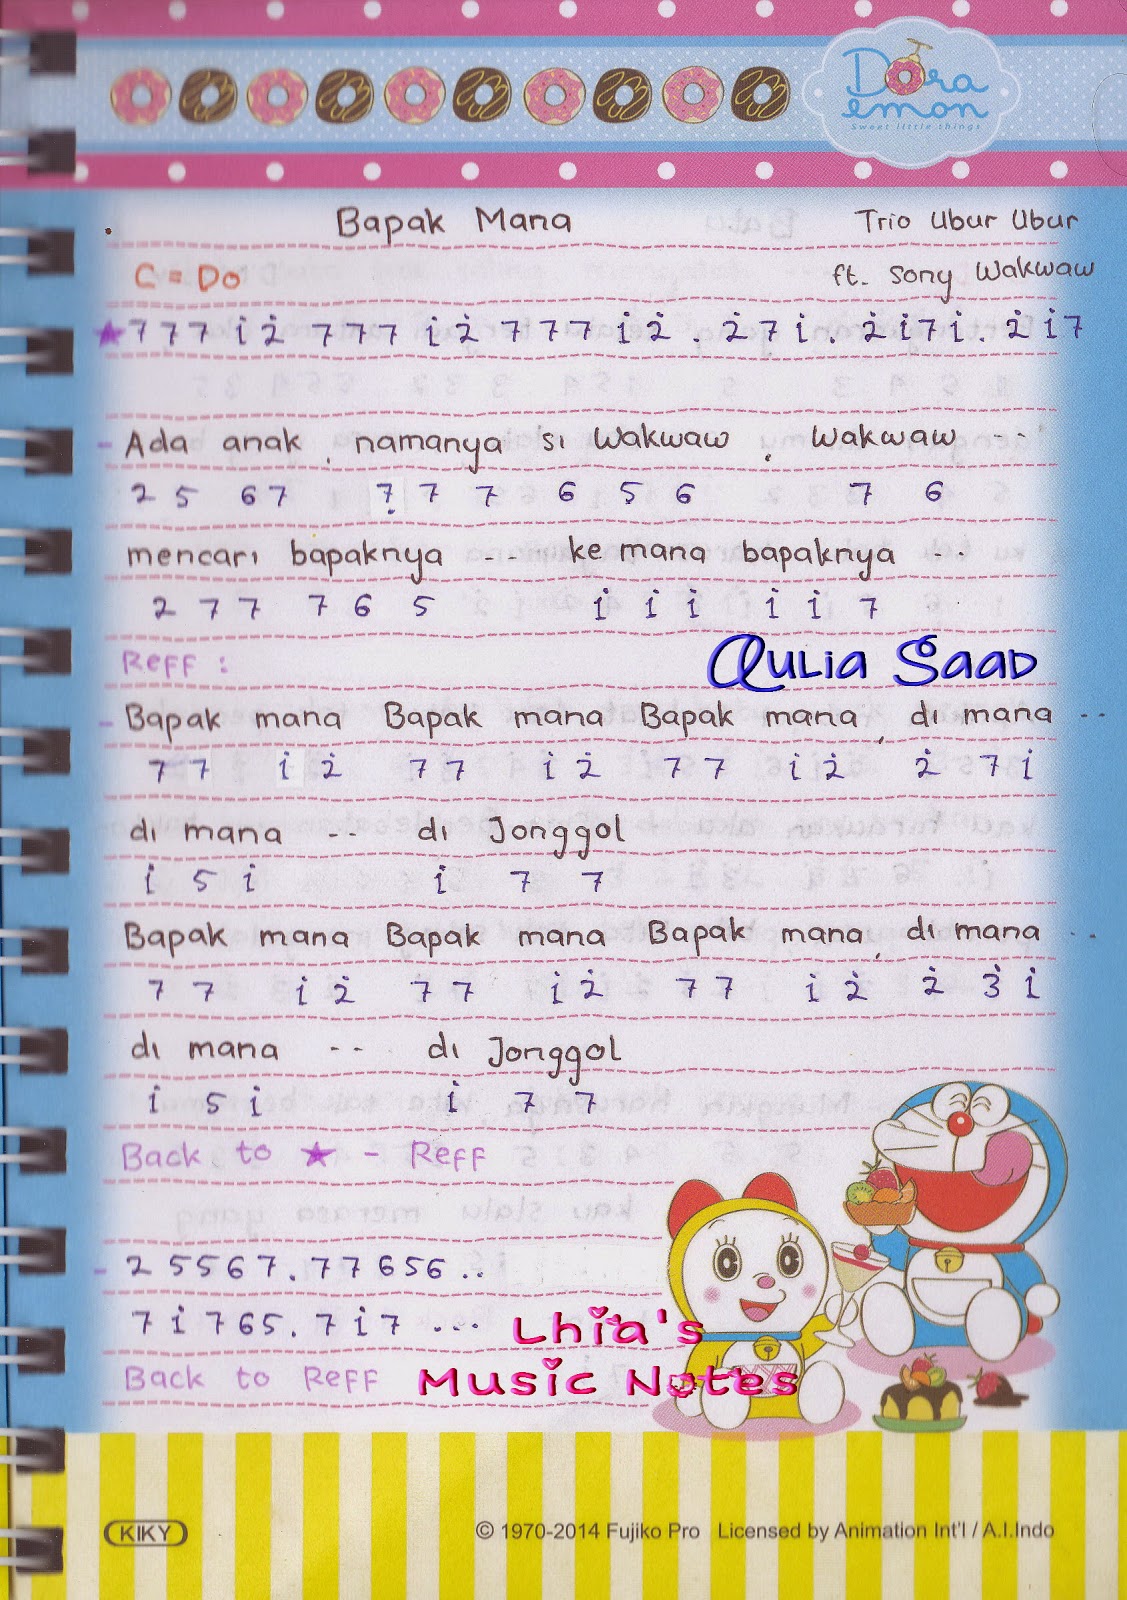 Doraemon
Sweet little things
Bapak Mana Trio Ubur Ubur
C = Do ft. Sony Wakwaw
★ 7 7 7 i̇ 2̇ 7 7 7 i̇ 2̇ 7 7 7 i̇ 2̇ . 2̇ 7 i̇ . 2̇ i̇ 7 i̇ . 2̇ i̇ 7
- Ada anak , namanya si Wakwaw , Wakwaw --
2 5 6 7 7̣ 7 7 6 5 6 7 6
mencari bapaknya --- ke mana bapaknya ---
2 7 7 7 6 5 i̇ i̇ i̇ i̇ i̇ 7
Reff :
Aulia Saad
- Bapak mana Bapak mana Bapak mana , di mana --
7 7 i̇ 2̇ 7 7 i̇ 2̇ 7 7 i̇ 2̇ 2̇ 7 i̇
di mana -- di Jonggol
i̇ 5 i̇ i̇ 7 7
Bapak mana Bapak mana Bapak mana , di mana --
7 7 i̇ 2̇ 7 7 i̇ 2̇ 7 7 i̇ 2̇ 2̇ 3̇ i̇
di mana -- di Jonggol
i̇ 5 i̇ i̇ 7 7
Back to ★ - Reff
- 2 5 5 6 7 . 7 7 6 5 6 ..
7 i̇ 7 6 5 . 7 i̇ 7 ...
Lhia's
Back to Reff
Music Notes
KIKY
© 1970-2014 Fujiko Pro Licensed by Animation Int'l / A.I.Indo